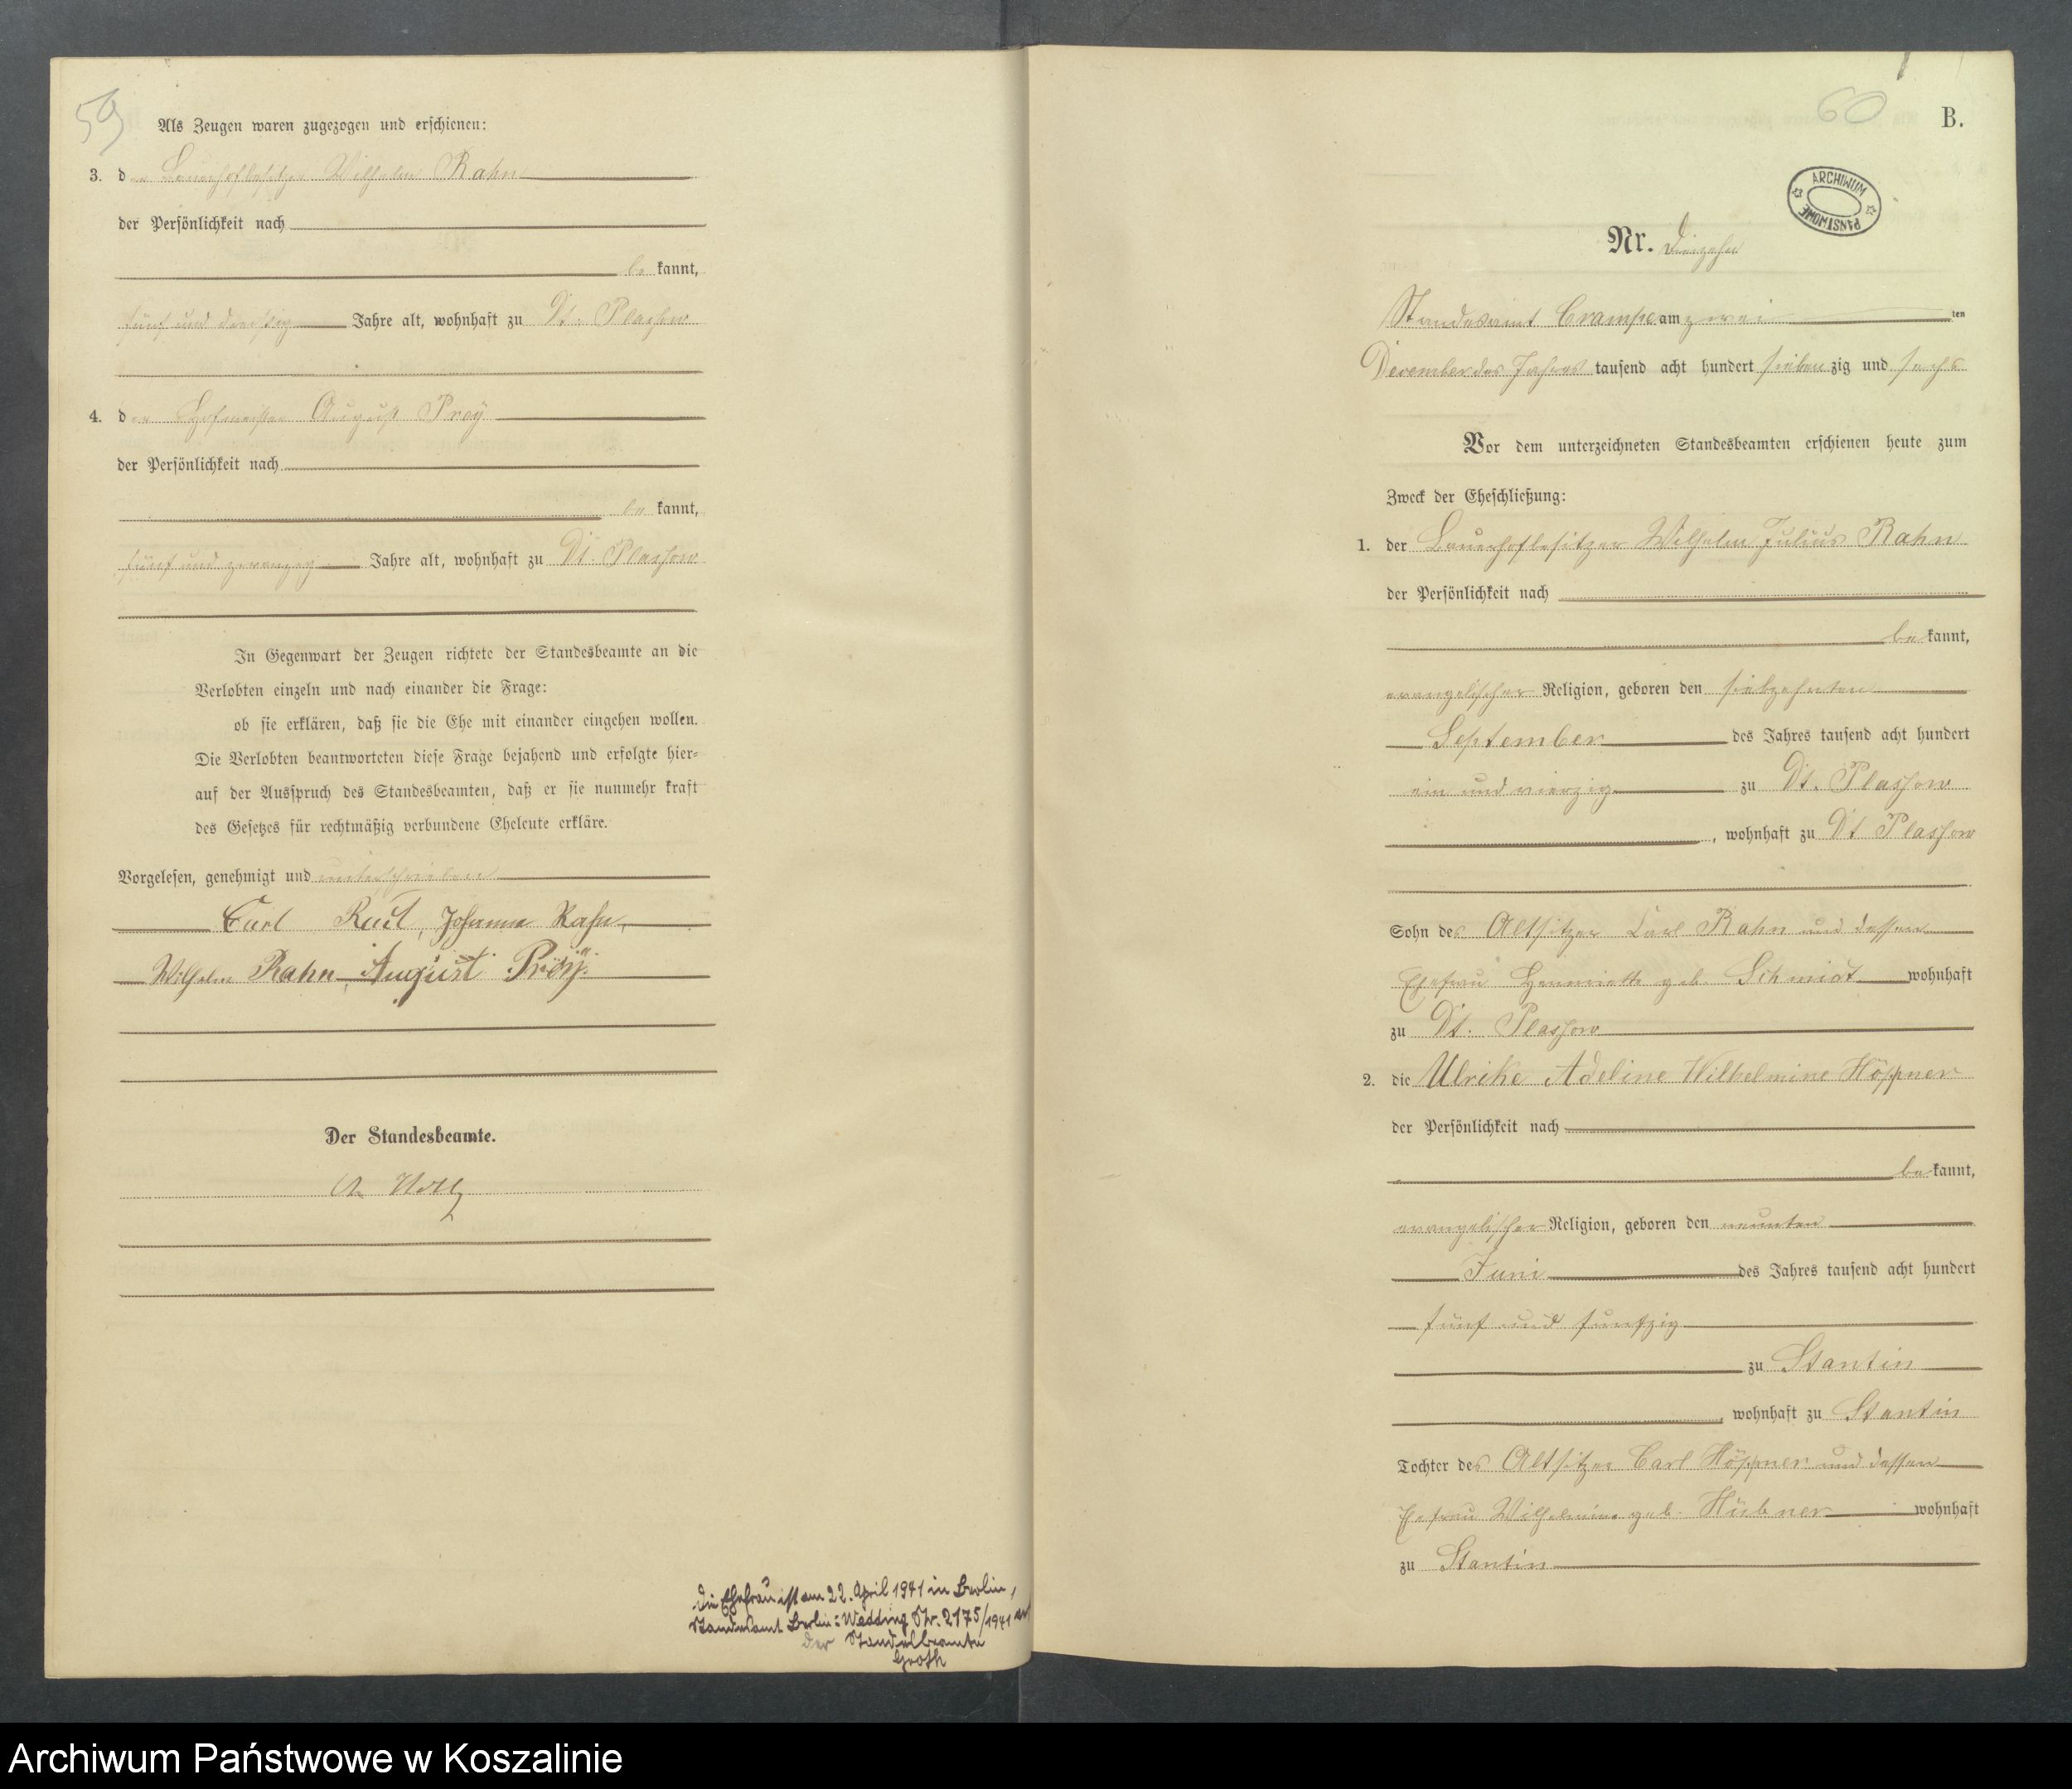 59
Als Zeugen waren zugezogen und erschienen:
3. der Bauerhofbesitzer Wilhelm Rahn
der Persönlichkeit nach
be kannt,
fünf und dreißig Jahre alt, wohnhaft zu Dt. Plassow
4. der Hofmeister August Proÿ
der Persönlichkeit nach
be kannt,
fünf und zwanzig Jahre alt, wohnhaft zu Dt. Plassow
In Gegenwart der Zeugen richtete der Standesbeamte an die
Verlobten einzeln und nach einander die Frage:
ob sie erklären, daß sie die Ehe mit einander eingehen wollen.
Die Verlobten beantworteten diese Frage bejahend und erfolgte hier-
auf der Ausspruch des Standesbeamten, daß er sie nunmehr kraft
des Gesetzes für rechtmäßig verbundene Eheleute erkläre.
Vorgelesen, genehmigt und unterschrieben
Carl Johanne Rahn,
Wilhelm Rahn, August Pröÿ.
Der Standesbeamte.
Die Ehefrau ist am 22. April 1941 in Berlin,
Standesamt Berlin-Wedding Nr. 2175/1941
Der Standesbeamte
Groth
60
B.
ARCHIWUM PAŃSTWOWE
Nr. Dreizehn
Standesamt Crampe am zwei ten
December des Jahres tausend acht hundert sieben zig und sechs
Vor dem unterzeichneten Standesbeamten erschienen heute zum
Zweck der Eheschließung:
1. der Bauerhofbesitzer Wilhelm Julius Rahn
der Persönlichkeit nach
be kannt,
evangelischer Religion, geboren den siebzehnten
September des Jahres tausend acht hundert
ein und vierzig zu Dt. Plassow
, wohnhaft zu Dt Plassow
Sohn des Altsitzer Carl Rahn und dessen
Ehefrau Henriette geb. Schmidt wohnhaft
zu Dt. Plassow
2. die Ulrike Adeline Wilhelmine Höppner
der Persönlichkeit nach
be kannt,
evangelischer Religion, geboren den neunten
Juni des Jahres tausend acht hundert
fünf und funfzig
zu Stantin
, wohnhaft zu Stantin
Tochter des Altsitzer Carl Höppner und dessen
Ehefrau Wilhelmine geb. Hübner wohnhaft
zu Stantin
Archiwum Państwowe w Koszalinie